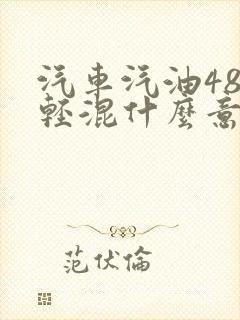 汽車汽油48
輕混什麼意
范伏倫